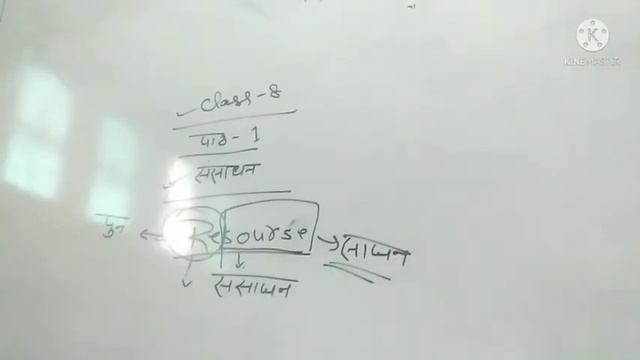 KINEMASTER
Class-8
पाठ-1
संसाधन
पुन Resourse साधन
संसाधन